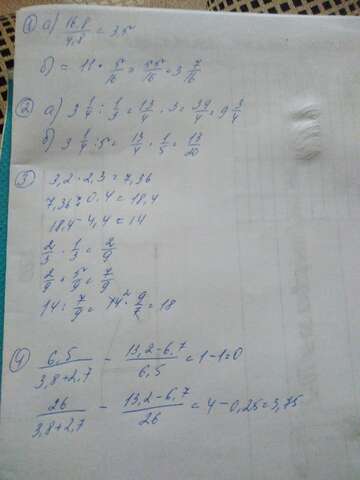 ① а) 16,8/4,8 = 3,5
б) = 11 · 5/16 = 55/16 = 3 7/16
② а) 3 1/4 : 1/3 = 13/4 · 3 = 39/4 = 9 3/4
б) 3 1/4 : 5 = 13/4 · 1/5 = 13/20
③ 3,2 · 2,3 = 7,36
7,36 : 0,4 = 18,4
18,4 - 4,4 = 14
2/3 · 1/3 = 2/9
2/9 + 5/9 = 7/9
14 : 7/9 = 14 · 9/7 = 18
④ 6,5/(3,8+2,7) - (13,2-6,7)/6,5 = 1-1=0
26/(3,8+2,7) - (13,2-6,7)/26 = 4-0,25=3,75